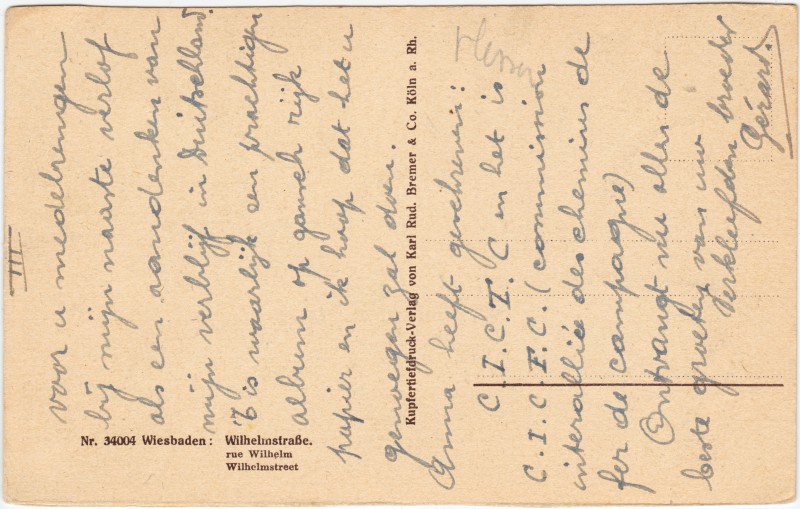 III
voor u medebrengen
bij mijn naaste verlof
als een aandenken van
mijn verblijf in Duitschland.
't is waarlijk een prachtige
album op gansch rijk
papier en ik hoop dat het u
genoegen zal doen.
Anna heeft geschreven:
C.I.C.T.C en het is
C.I.C.F.C. (commission
interalliée des chemins de
fer de campagne)
Ontvangt nu alles de
beste groeten van uw
Verkleefden broeder
Gérard.
Kupfertiefdruck-Verlag von Karl Rud. Bremer & Co. Köln a. Rh.
Nr. 34004 Wiesbaden: Wilhelmstraße.
rue Wilhelm
Wilhelmstreet